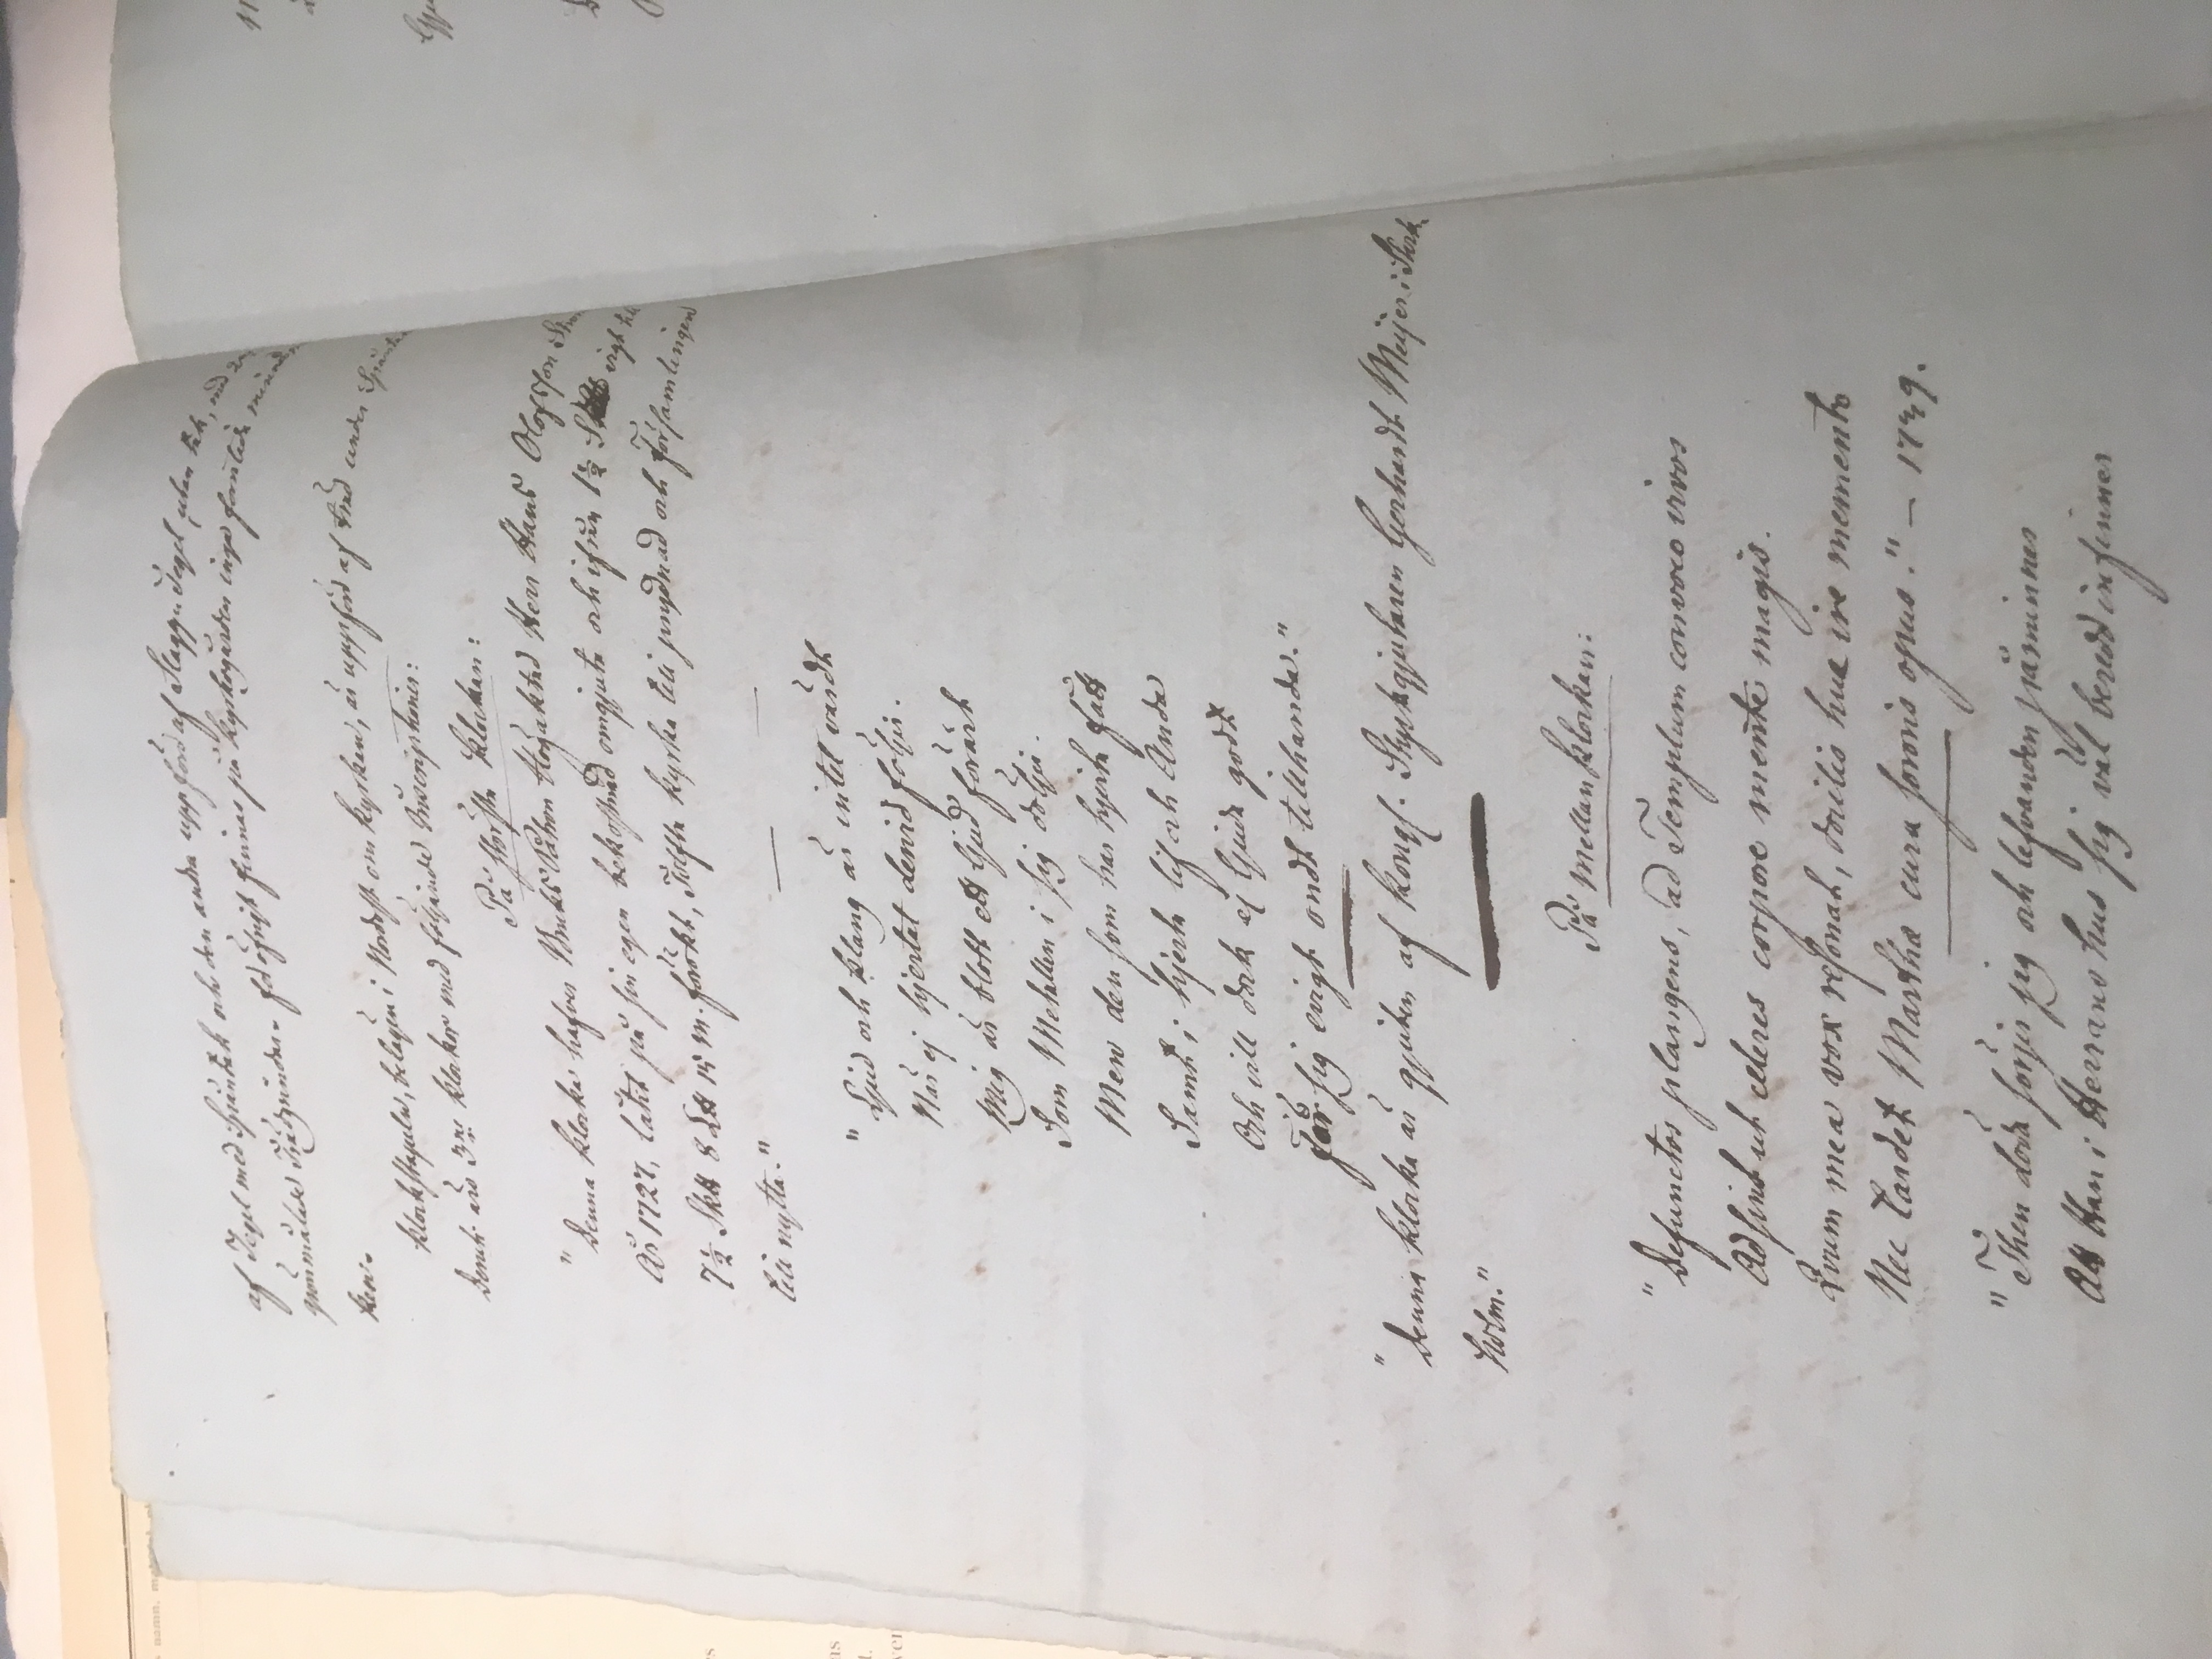 af Tegel med Spåntak och den andra uppförd af Slagg Tegel utan tak, med
grönmålade Trägrindar. För öfrigt finnas på kyrkogården inga familie
ken.
Klockstapeln, belägen i Nordost om kyrkan, är uppförd af träd under
Deruti äro 3ne klockor med följande Inscriptioner:
På största klockan:
"Denna klocka hafver Bruks Patron Högaktad Herr Hans Olofsson
År 1727, låtit på sin egen bekostnad omgjuta och ifrån 1½ Sk
7½ Sk 8 L 15 m. förökt, Tolfta kyrka till prydnad och Församlingen
till nytta."
"Ljud och klang är intet värdt
När ej hjertat dervid följer.
Mig är blott ett ljud förärt
Som Metallen i sig döljer.
Men den som har hjerta fått
Samt i hjerta lif och Anda
Och vill dock ej ljuda godt
Får sig evigt ondt tillhanda."
"Denna klocka är gjuten af Kongl. Styckgjutaren Gerhardt Meijer i Stock
holm."
På Mellanklockan:
"Defunctos plangens, ad Templum convoco vivos
Adsint ut celeres corpore mente magis.
Qvum mea vox resonat, docilis huc ire memento
Nec tardet Martha cura foris opus." – 1749.
"Then döda sörjer jag och lefvanden påminner
Att Han i Herrans hus sig väl beredd infinner